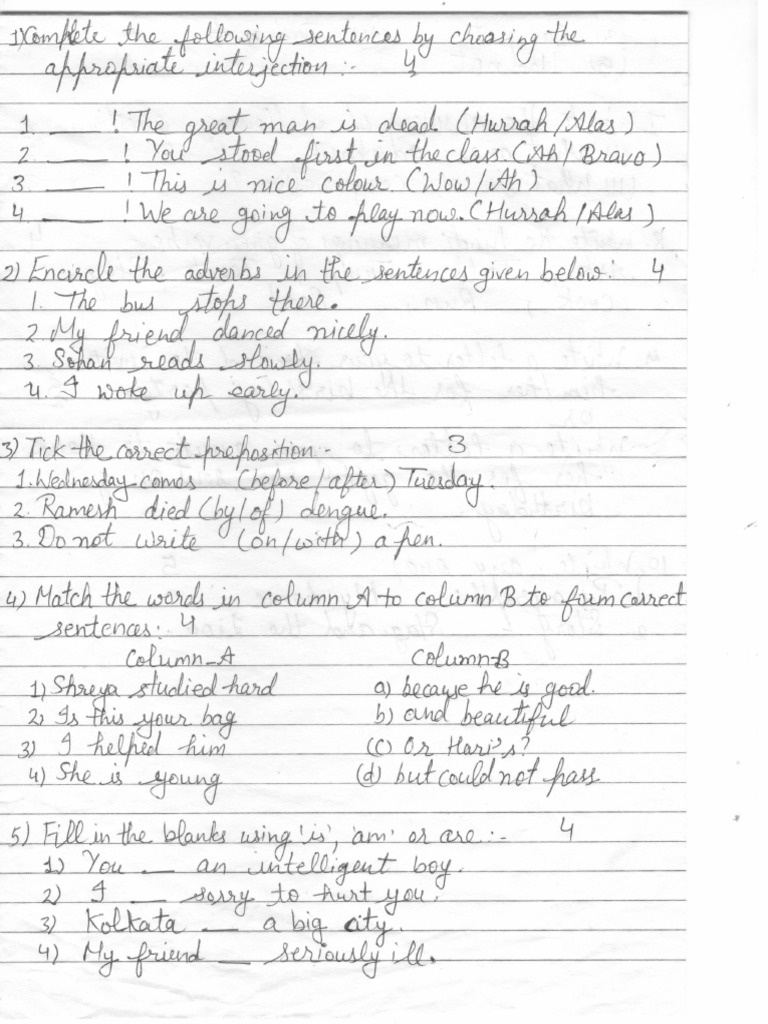 1) Complete the following sentences by choosing the
appropriate interjection :- 4
1. ____ ! The great man is dead. (Hurrah/Alas)
2 ____ ! You stood first in the class. (Ah/Bravo)
3 ____ ! This is nice colour. (Wow/Ah)
4. ____ ! We are going to play now. (Hurrah/Alas)
2) Encircle the adverbs in the sentences given below: 4
1. The bus stops there.
2. My friend danced nicely.
3. Sohan reads slowly.
4. I woke up early.
3) Tick the correct preposition - 3
1. Wednesday comes (before/after) Tuesday.
2. Ramesh died (by/of) dengue.
3. Do not write (on/with) a pen.
4) Match the words in column A to column B to form correct
sentences: 4
Column-A Column-B
1) Shreya studied hard a) because he is good.
2) Is this your bag b) and beautiful
3) I helped him (c) Or Hari's?
4) She is young (d) but could not pass
5) Fill in the blanks using 'is', 'am' or are :- 4
1) You __ an intelligent boy.
2) I __ sorry to hurt you.
3) Kolkata __ a big city.
4) My friend __ seriously ill.